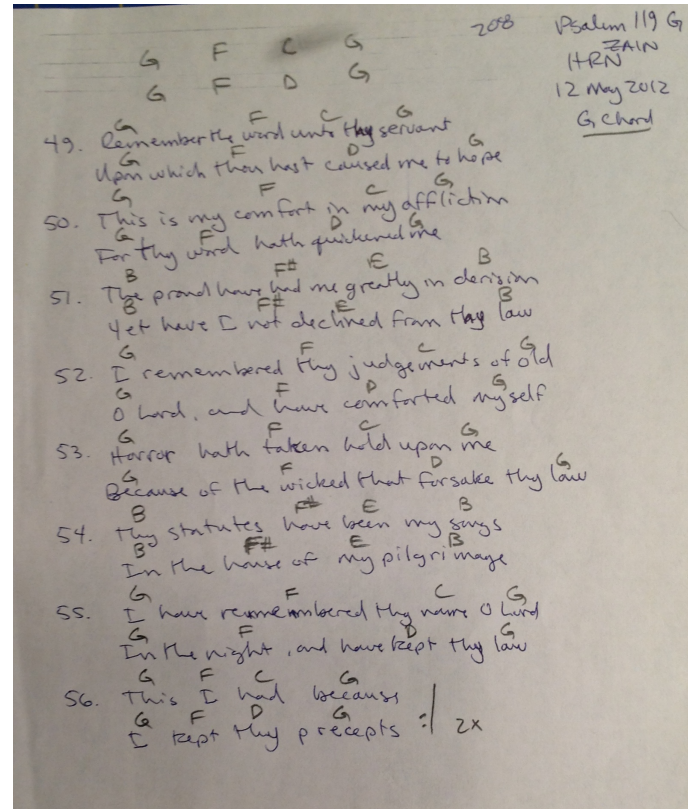 208 Psalm 119 G
ZAIN
G F C G HRN
G F D G 12 May 2012
G Chord
G F C G
49. Remember the word unto thy servant
G F D G
Upon which thou hast caused me to hope
G F C G
50. This is my comfort in my affliction
G F D G
For thy word hath quickened me
B F# E B
51. The proud have had me greatly in derision
B F# E B
Yet have I not declined from thy law
G F C G
52. I remembered thy judgements of old
G F D G
O Lord, and have comforted myself
G F C G
53. Horror hath taken hold upon me
G F D G
Because of the wicked that forsake thy law
B F# E B
54. Thy statutes have been my songs
B F# E B
In the house of my pilgrimage
G F C G
55. I have remembered thy name O Lord
G F D G
In the night, and have kept thy law
G F C G
56. This I had because
G F D G
I kept thy precepts :| 2x